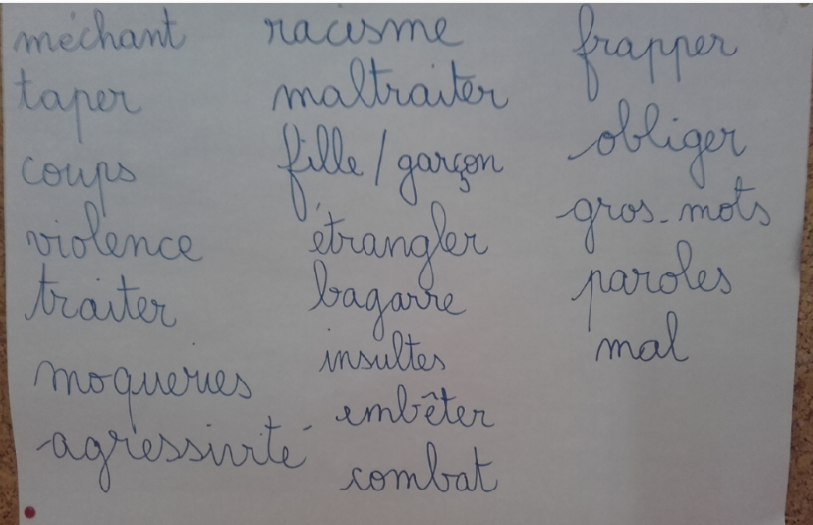 méchant
taper
coups
violence
traiter
moqueries
agressivité
racisme
maltraiter
fille / garçon
étrangler
bagarre
insultes
embêter
combat
frapper
obliger
gros-mots
paroles
mal